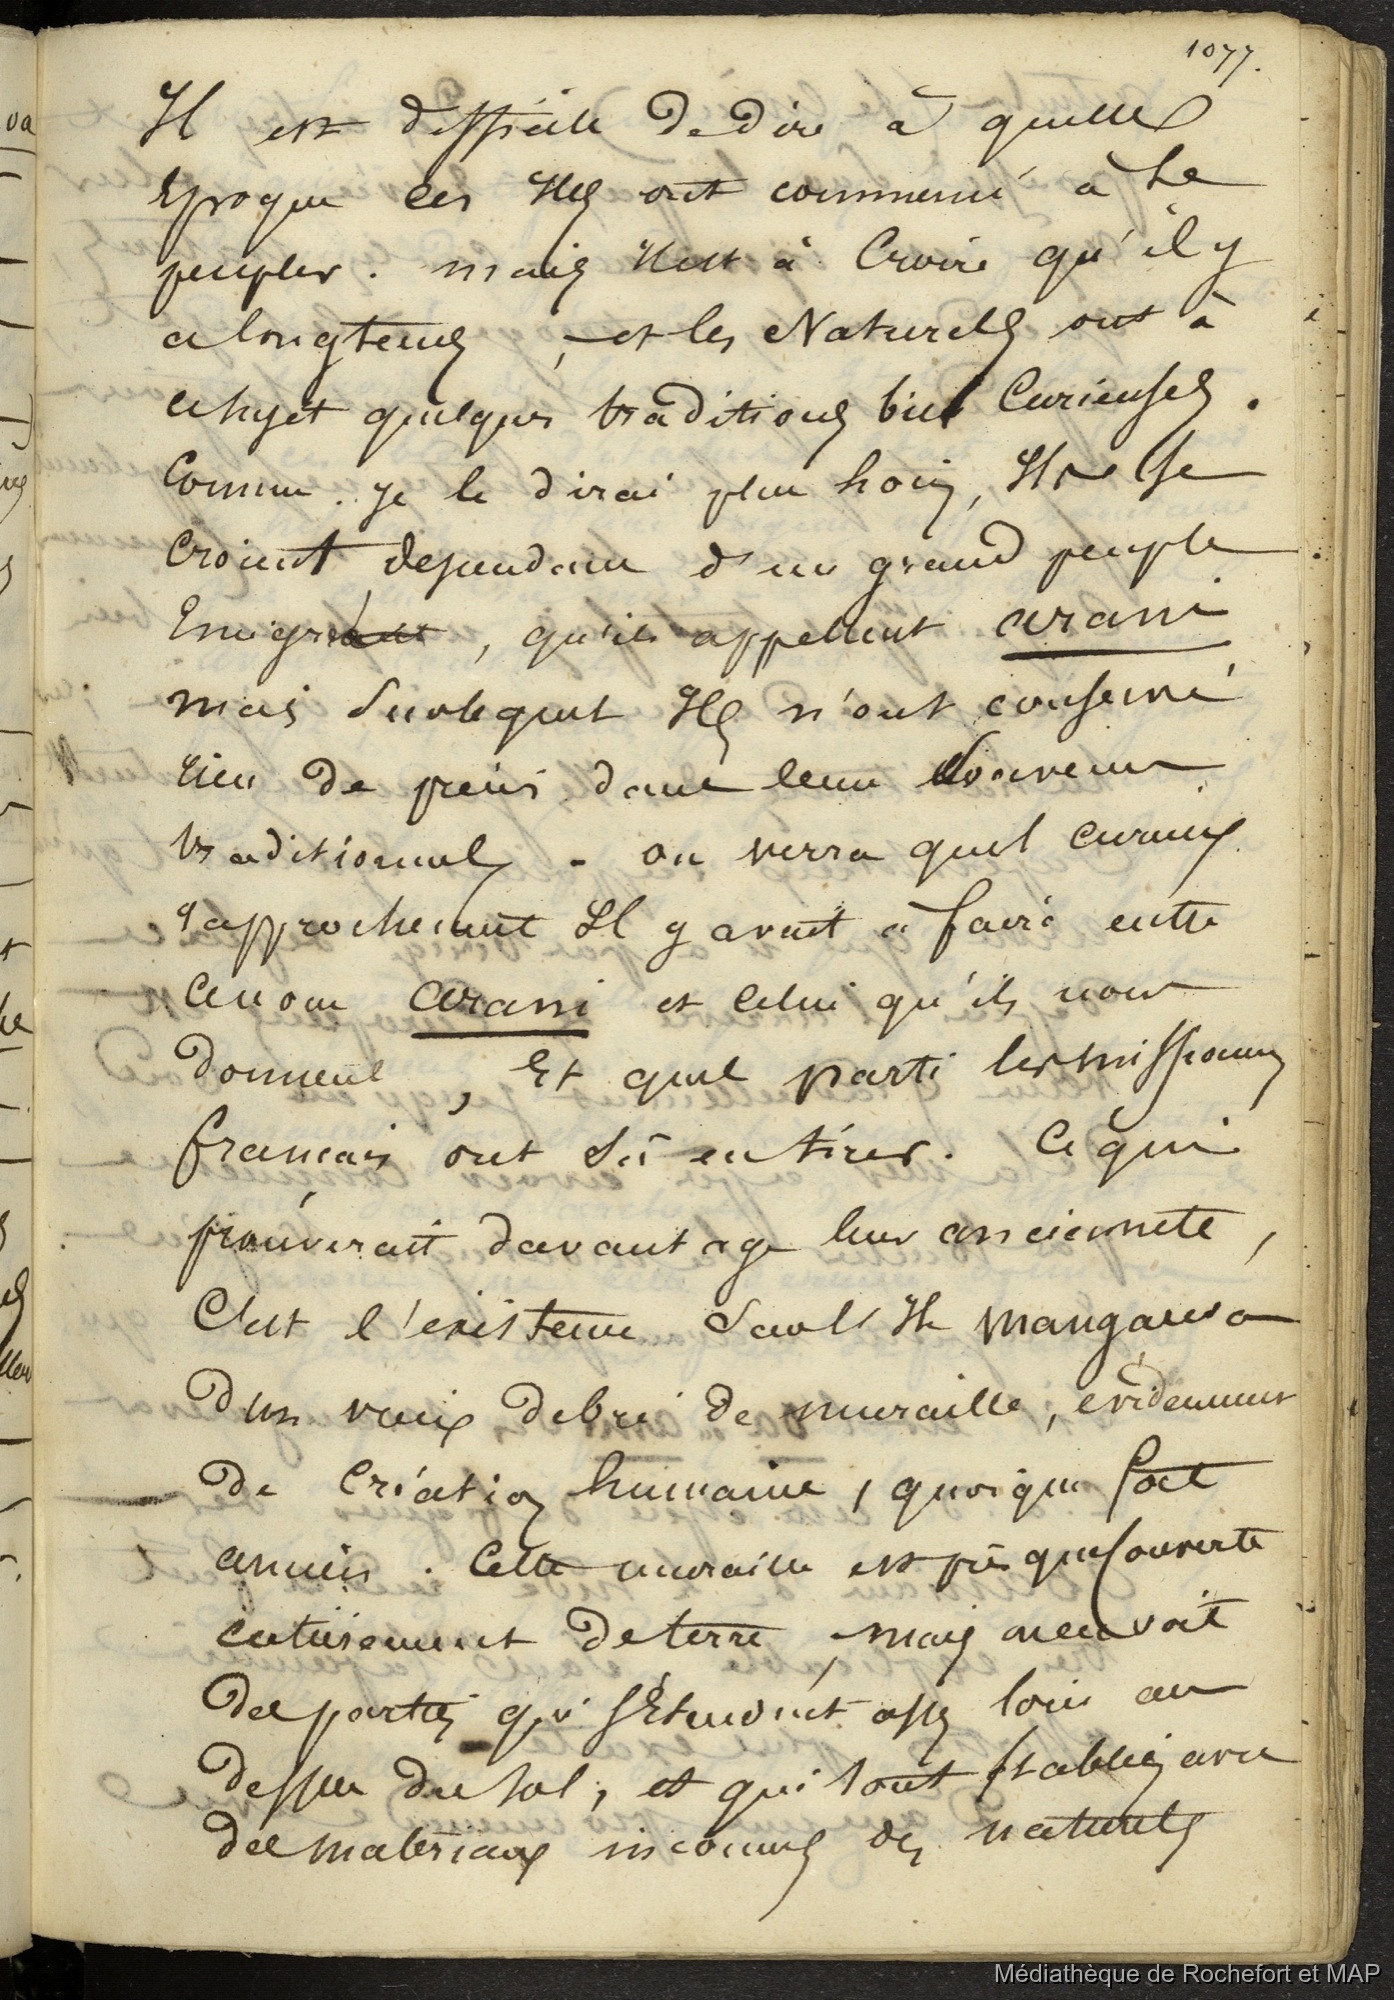 1077.
Il est difficile de dire à quelle
Epoque ces Iles ont commencé à se
peupler. mais Il est à Croire qu'il y
a longtems, et les Naturels ont à
ce sujet quelques traditions bien Curieuses.
Comme je le dirai plus loin, Ils se
Croient descendans d'un grand peuple
Emigré, qu'ils appellent arani
mais sur lequel Ils n'ont conservé
rien de précis dans leurs souvenirs
traditionnels - on verra quel curieux
rapprochement Il y avait à faire entre
ce nom arani et celui qu'ils nous
donnent, Et quel parti les missionn
francais ont sû en tirer. Ce qui
prouverait davantage leur ancienneté,
C'est l'existence dans l'Ile mangareva
d'un vieux debri de muraille, evidemment
de Création humaine, quoique fort
ancien. Cette muraille est presque couverte
entièrement de terre, mais on en voit
des parties qui s'étendent assez loin au
dessus du sol, et qui sont Etablies avec
des matériaux inconnus des naturels
Médiathèque de Rochefort et MAP